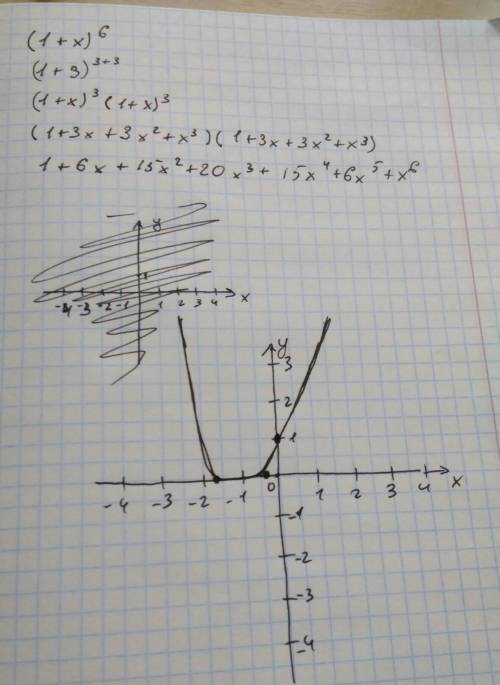 (1+x)⁶
(1+9)³⁺³
(1+x)³(1+x)³
(1+3x+3x²+x³)(1+3x+3x²+x³)
1+6x+15x²+20x³+15x⁴+6x⁵+x⁶
y
-4 -3 -2 -1 1 2 3 4 x
y
3
2
1
-4 -3 -2 -1 0 1 2 3 4 x
-1
-2
-3
-4